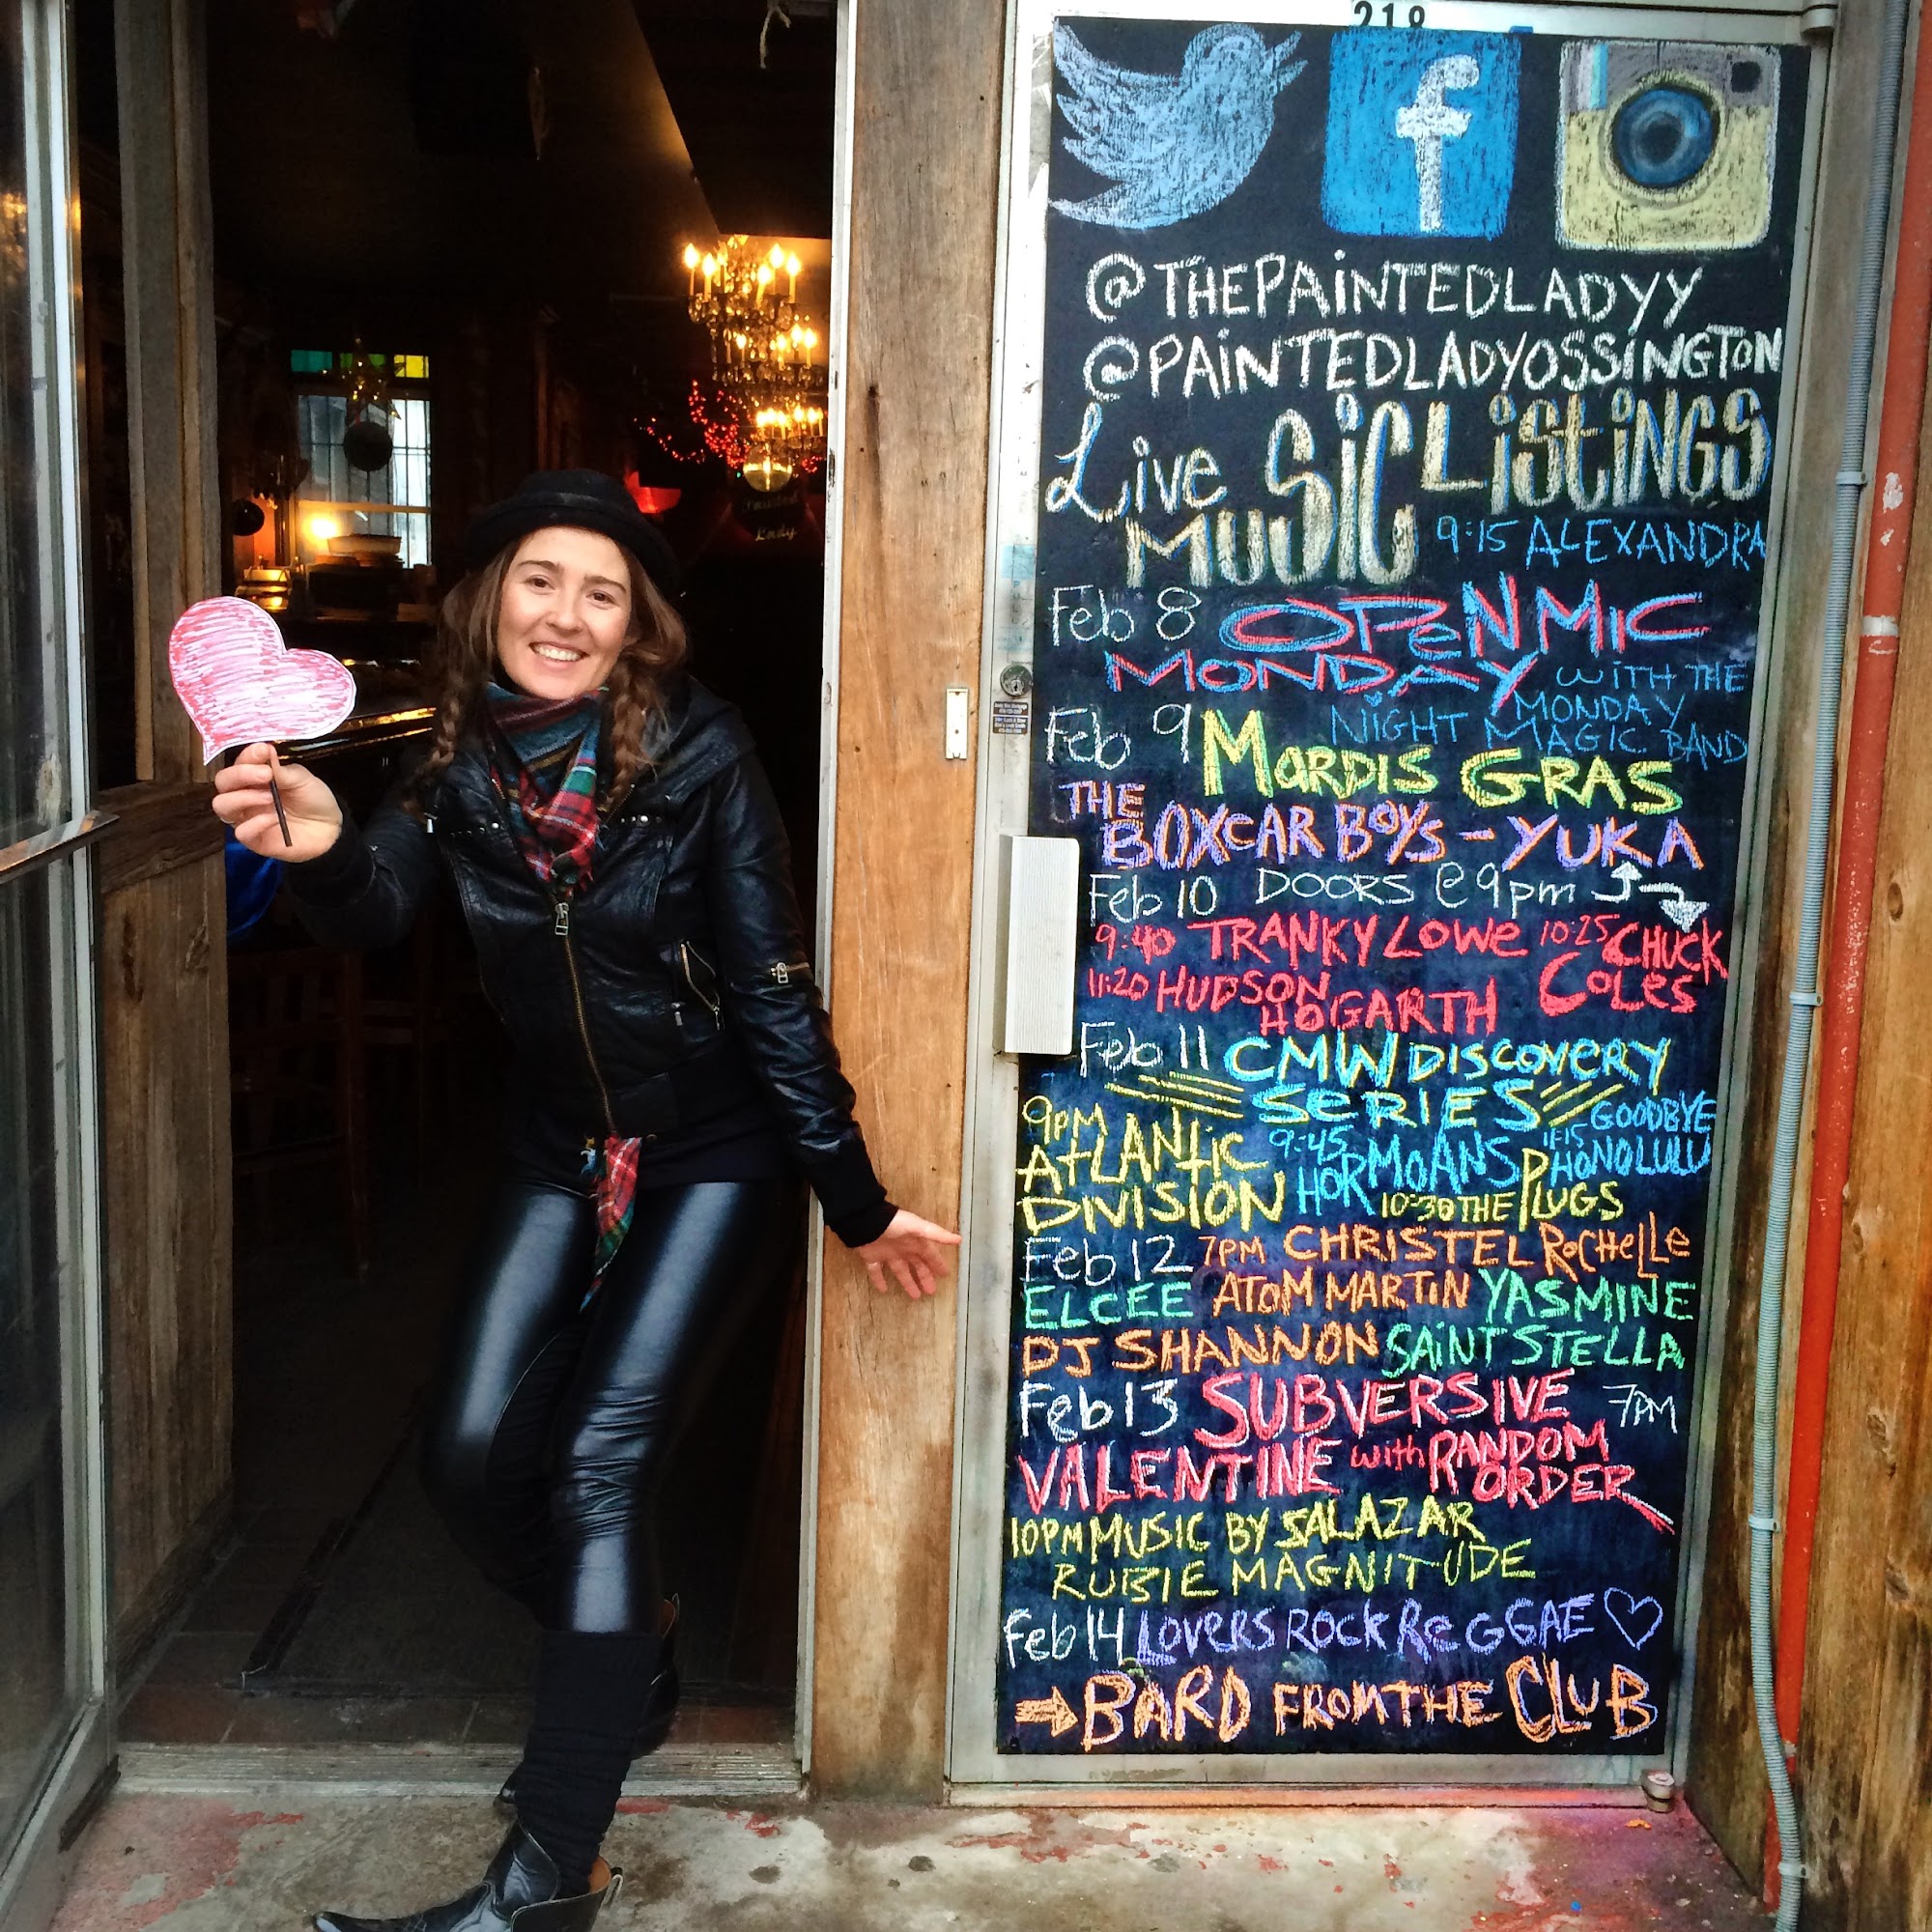 218
f
@THEPAINTEDLADYY
@PAINTEDLADYOSSINGTON
Live MUSIC LISTINGS
9:15 ALEXANDRA
Feb 8 OPEN MIC
MONDAY WITH THE
MONDAY
NIGHT MAGIC BAND
Feb 9 MARDIS GRAS
THE
BOXCAR BOYS - YUKA
Feb 10 DOORS @ 9pm
9:40 TRANKY LOWE 10:25 CHUCK
COLES
11:20 HUDSON
HOGARTH
Feb 11 CMW DISCOVERY
SERIES
9PM
ATLANTIC
DIVISION
9:45
HORMOANS
11:15 GOODBYE
HONOLULU
10:30 THE PLUGS
Feb 12 7PM CHRISTEL ROCHELLE
ELCEE ATOM MARTIN YASMINE
DJ SHANNON SAINT STELLA
Feb 13 SUBVERSIVE 7PM
VALENTINE with RANDOM
ORDER
10PM MUSIC BY SALAZAR
RUBIE MAGNITUDE
Feb 14 LOVERS ROCK REGGAE
BARD FROM THE CLUB
Painted
Lady